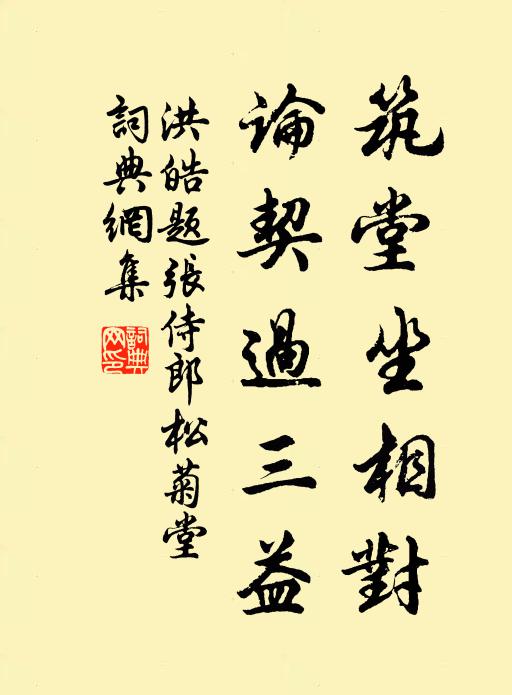 筑堂坐相對
論契過三益
洪皓题張侍郎松菊堂
詞典網集
詞典網印